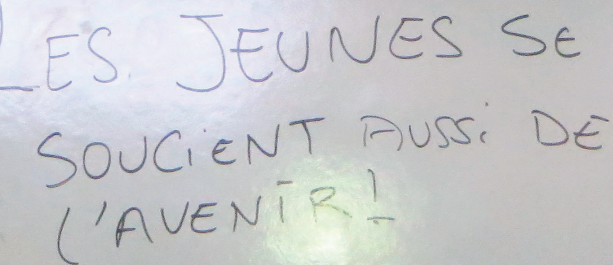 LES JEUNES SE
SOUCiENT AUSSi DE
L'AVENiR!